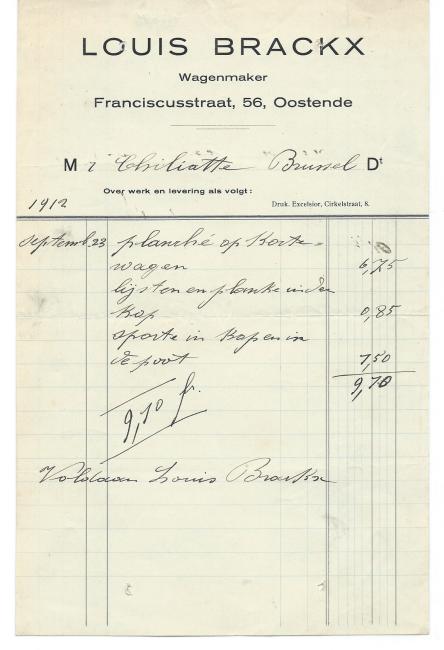 LOUIS BRACKX
Wagenmaker
Franciscusstraat, 56, Oostende
Mr Brüssel Dt
Over werk en levering als volgt:
1912
Druk. Excelsior, Cirkelstraat, 8.
september 23 planché op Korte
wagen 6,75
lijsten en planke in den
Kop 0,85
sporte in Kop en in
de poot
9,10
9,10 fr.
Voldaan Louis Brackx